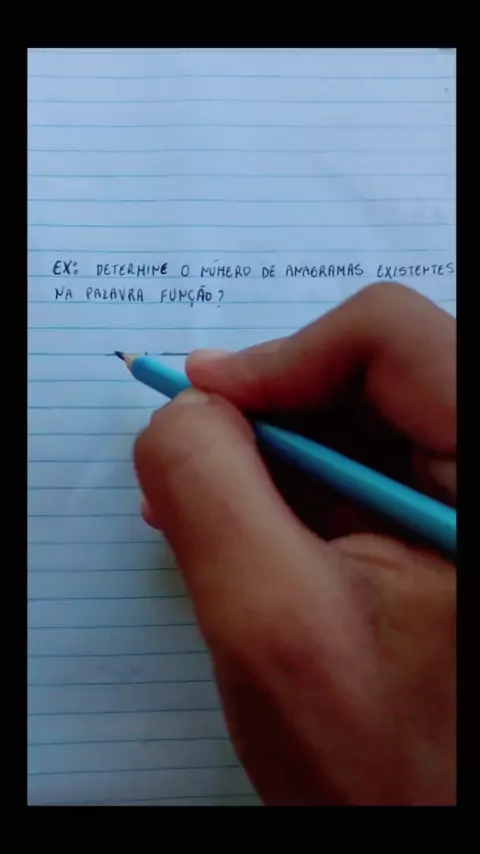 EX: DETERMINE O NÚMERO DE ANAGRAMAS EXISTENTES
NA PALAVRA FUNÇÃO?